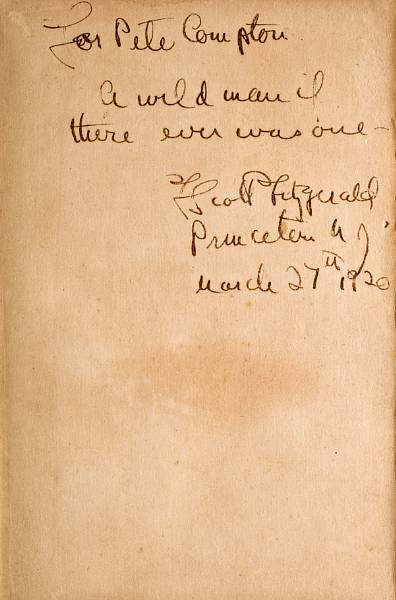 For Pete Compton.
A wild man if
there ever was one –
F Scott Fitzgerald
Princeton N J
March 27th 1920